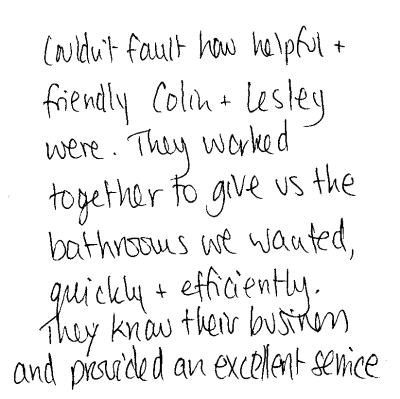 Couldn't fault how helpful +
friendly Colin + Lesley
were. They worked
together to give us the
bathrooms we wanted,
quickly + efficiently.
They know their business
and provided an excellent service